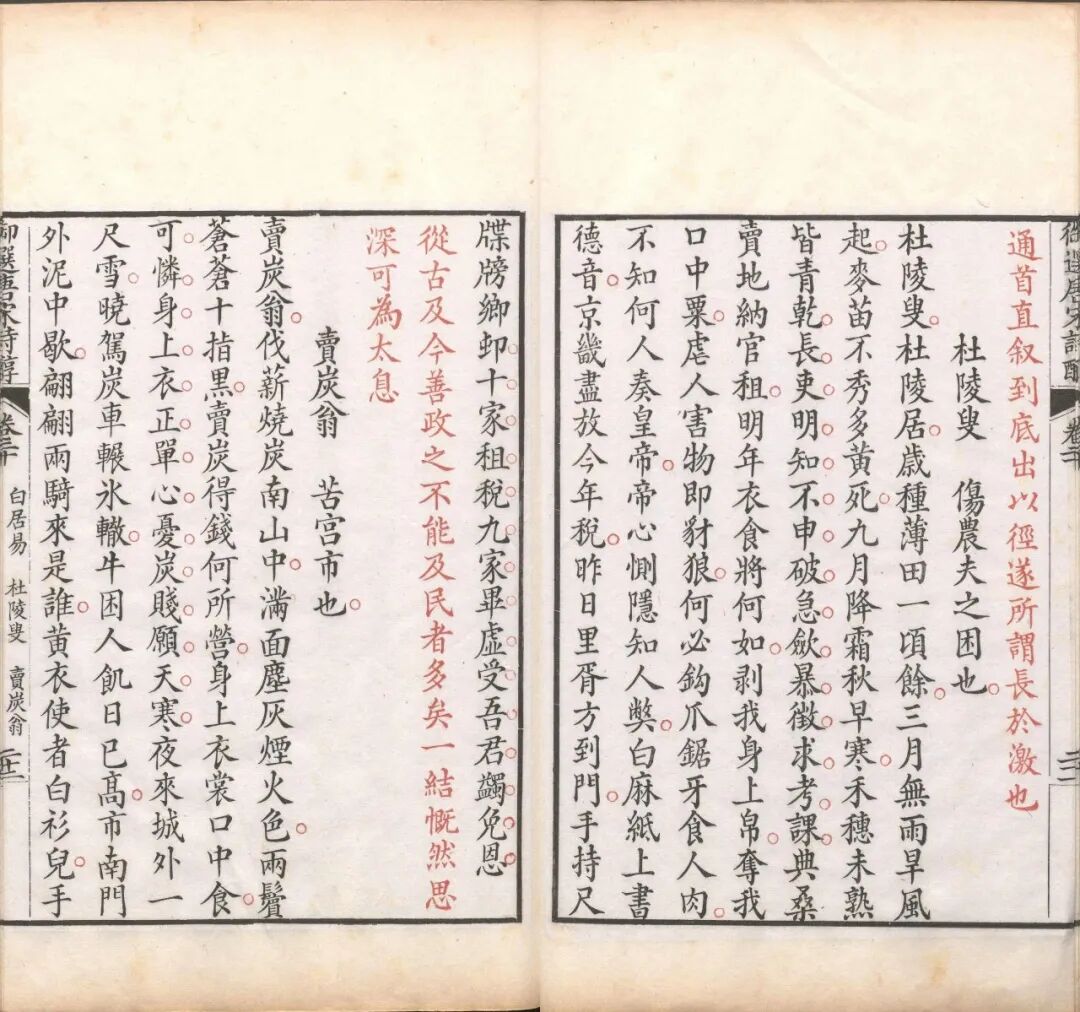 通首直叙到底出以徑遂所謂長於激也
杜陵叟 傷農夫之困也
杜陵叟杜陵居歲種薄田一頃餘三月無雨旱風
起麥苗不秀多黃死九月降霜秋早寒禾穗未熟
皆青乾長吏明知不申破急斂暴徵求考課典桑
賣地納官租明年衣食將何如剥我身上帛奪我
口中粟虐人害物即豺狼何必鈎爪鋸牙食人肉
不知何人奏皇帝帝心惻隱知人弊白麻紙上書
德音京畿盡放今年稅昨日里胥方到門手持尺
牒牓鄉邨十家租稅九家畢虛受吾君蠲免恩
從古及今善政之不能及民者多矣一結慨然思
深可為太息
賣炭翁 苦宮市也
賣炭翁伐薪燒炭南山中滿面塵灰煙火色兩鬢
蒼蒼十指黑賣炭得錢何所營身上衣裳口中食
可憐身上衣正單心憂炭賤願天寒夜來城外一
尺雪曉駕炭車輾氷轍牛困人飢日已高市南門
外泥中歇翩翩兩騎來是誰黃衣使者白衫兒手
御選唐宋詩醇 卷二十 白居易 杜陵叟 賣炭翁